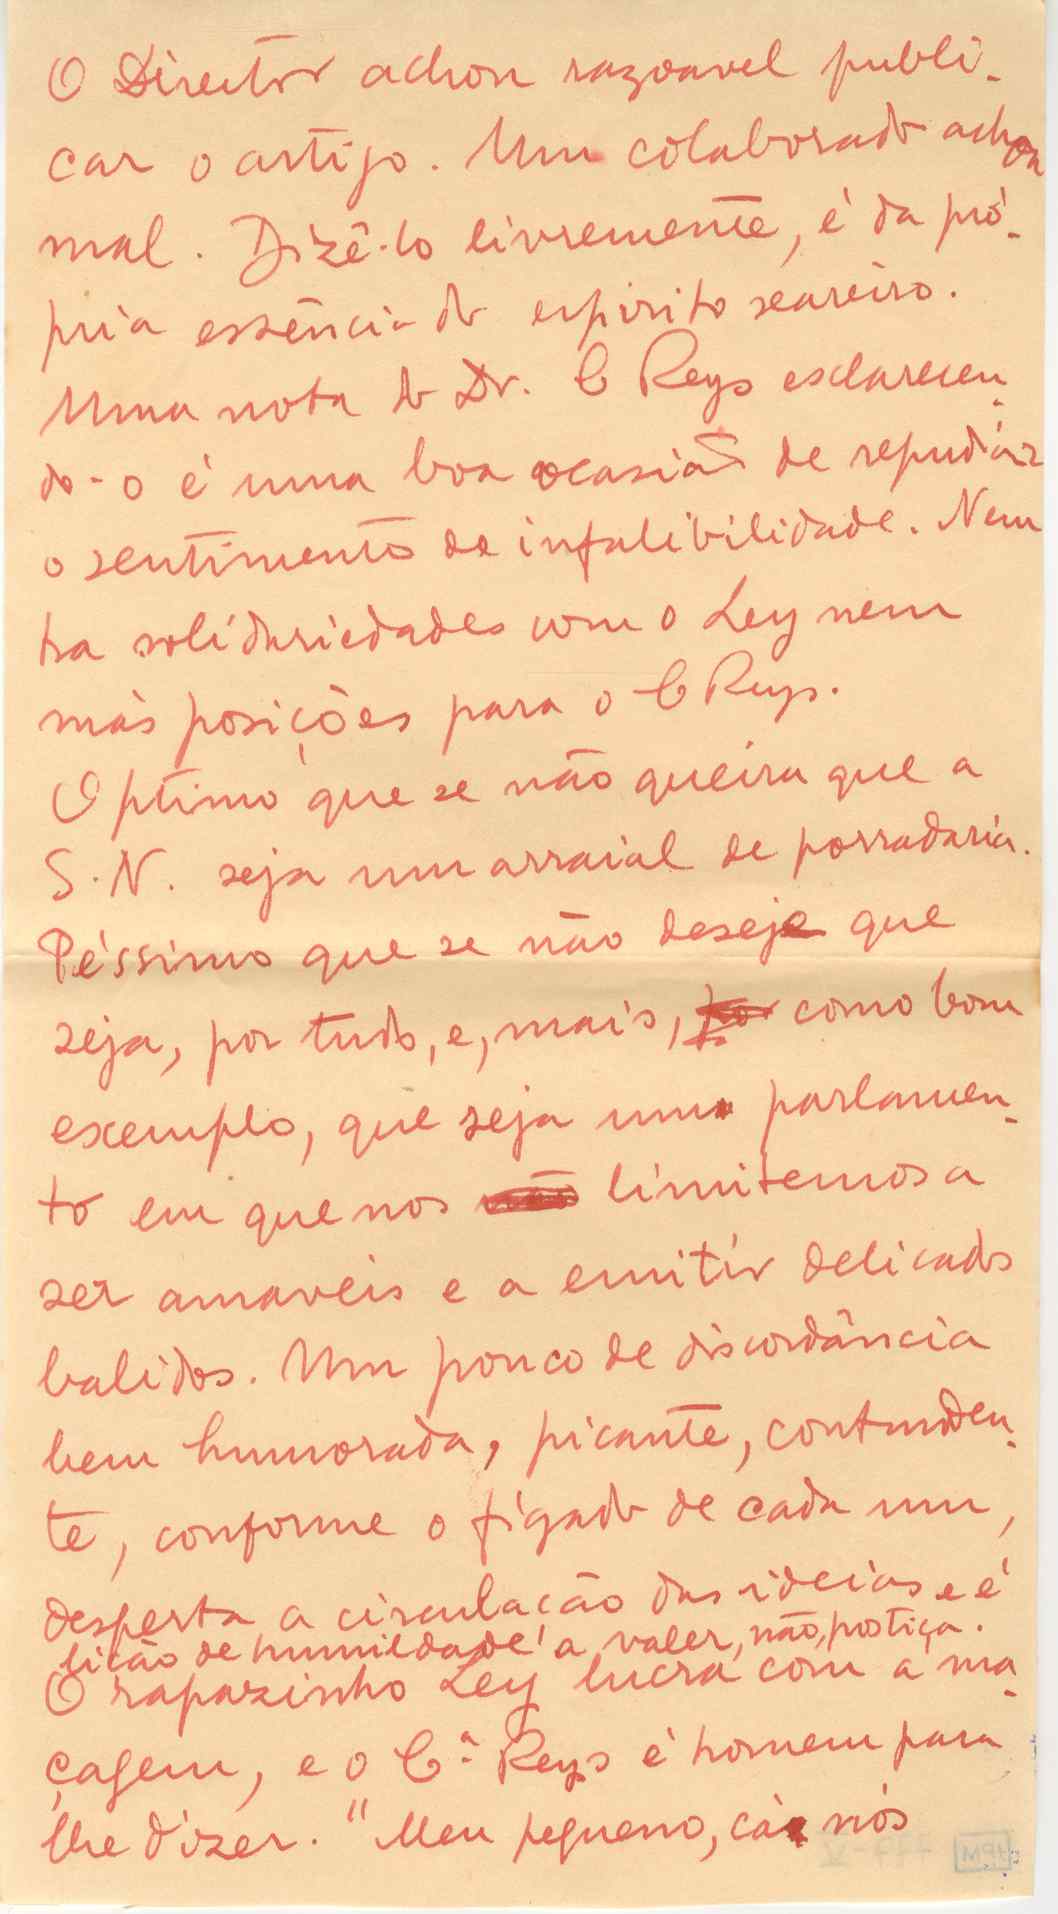 O Director achou razoavel publi-
car o artigo. Um colaborador achou
mal. Dizê-lo livremente, é da pró-
pria essência do espirito seareiro.
Uma nota do Dr. C Reys esclarecen-
do-o é uma boa ocasião de repudiar
o sentimento de infalibilidade. Nem
ha solidariedades com o Ley nem
más posições para o C Reys.
Optimo que se não queira que a
S.N. seja um arraial de porradaria.
Péssimo que se não deseje que
seja, por tudo, e, mais, por como bom
exemplo, que seja um parlamen-
to em que nos não limitemos a
ser amaveis e a emitir delicados
balidos. Um pouco de discordância
bem humorada, picante, contunden-
te, conforme o fígado de cada um,
desperta a circulação das ideias e é
lição de humildade a valer, não, postiça.
O rapazinho Ley lucra com a ma-
çagem, e o Cª Reys é homem para
lhe dizer. "Meu pequeno, cá nós